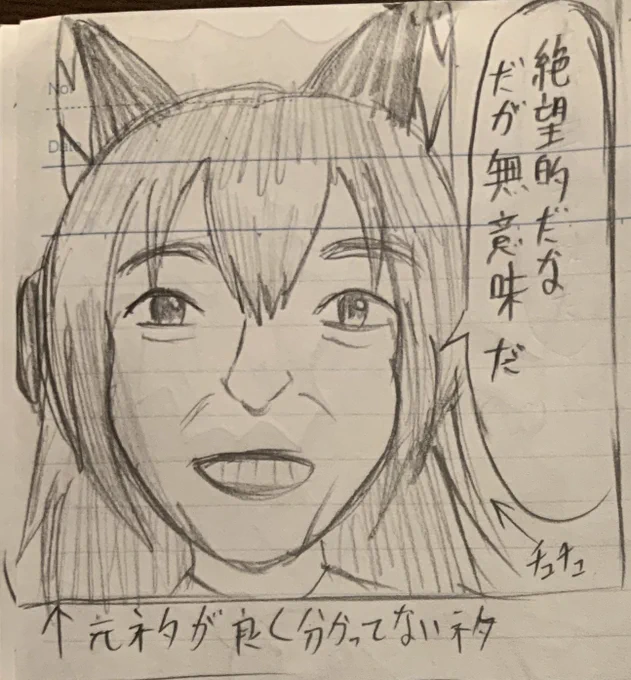 絶望的だな
だが無意味だ
チュチュ
↑元ネタが良く分かってないネタ
No.
Date